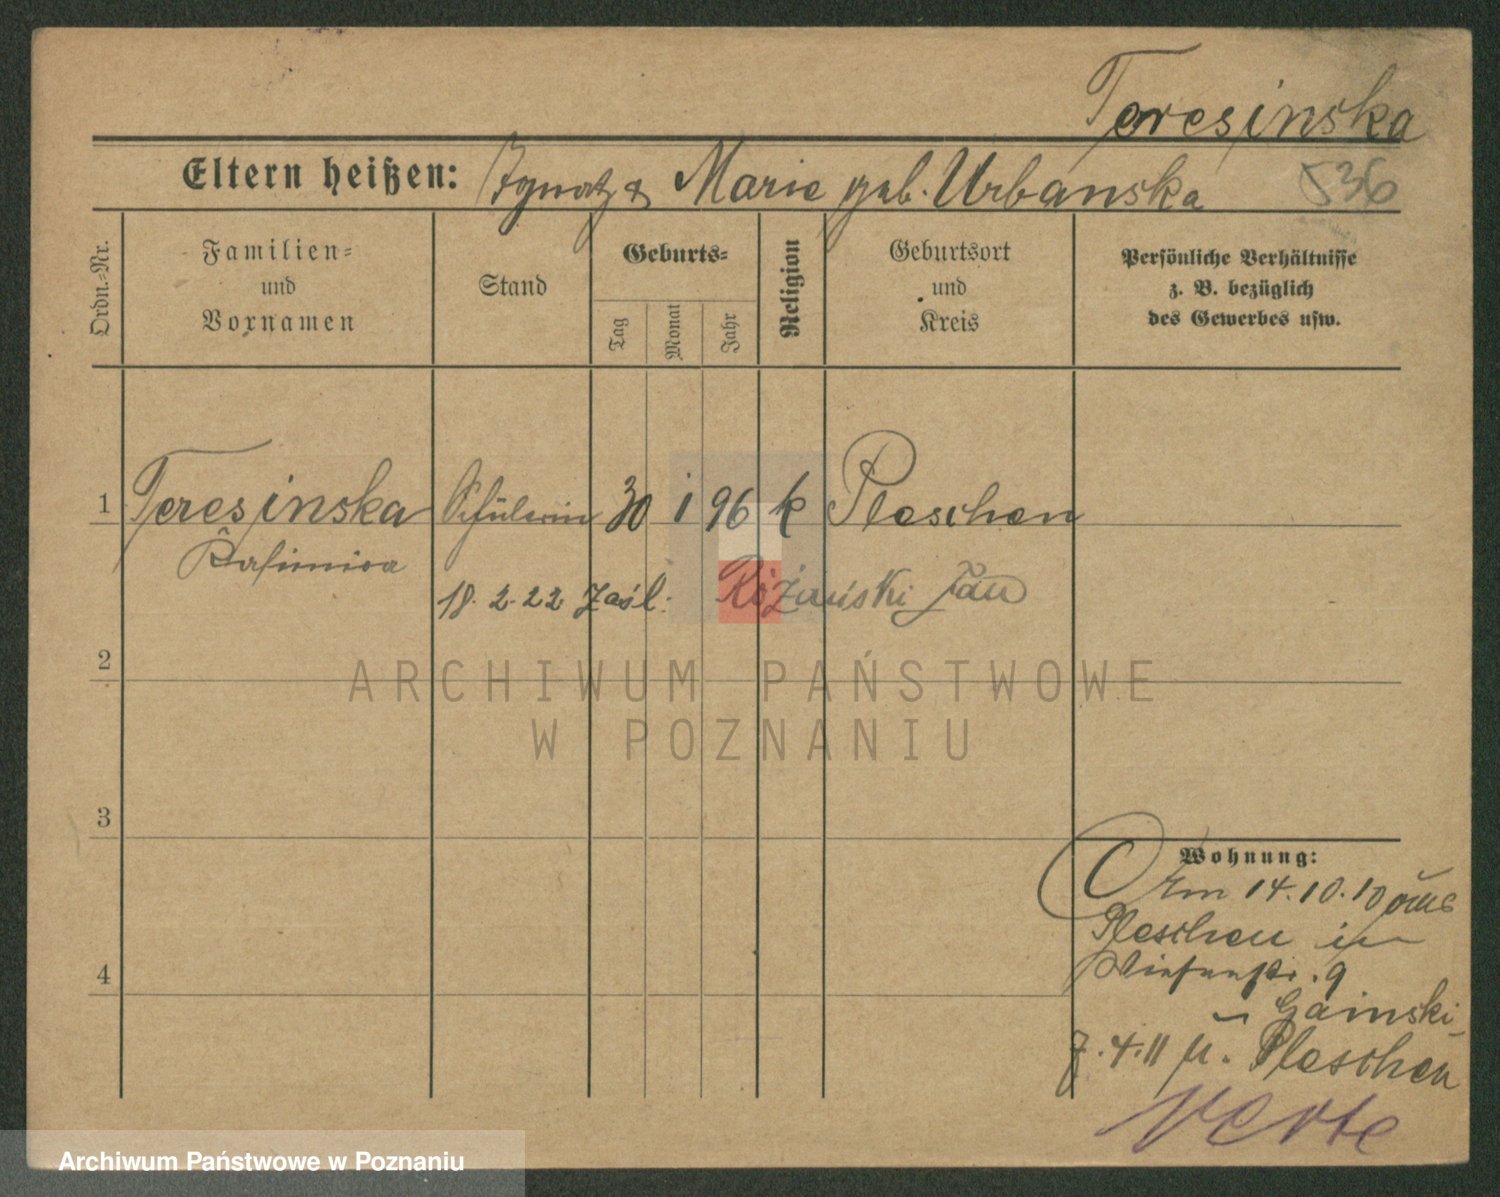 Teresinska
Eltern heißen: Ignatz & Marie geb. Urbanska
536
Ordn.-Nr.
Familien-
und
Vornamen
Stand
Geburts-
Tag
Monat
Jahr
Religion
Geburtsort
und
Kreis
Persönliche Verhältnisse
z. B. bezüglich
des Gewerbes usw.
1 Teresinska Schülerin 30 1 96 k Pleschen
Kasimira
18. 2. 22 Zaśl. Różański Jan
2
ARCHIWUM PAŃSTWOWE
W POZNANIU
3
Wohnung:
Am 14.10.10 aus
Pleschen in
Wiesenstr. 9
4
Gainski
7.4.11 n. Pleschen
Verte
Archiwum Państwowe w Poznaniu